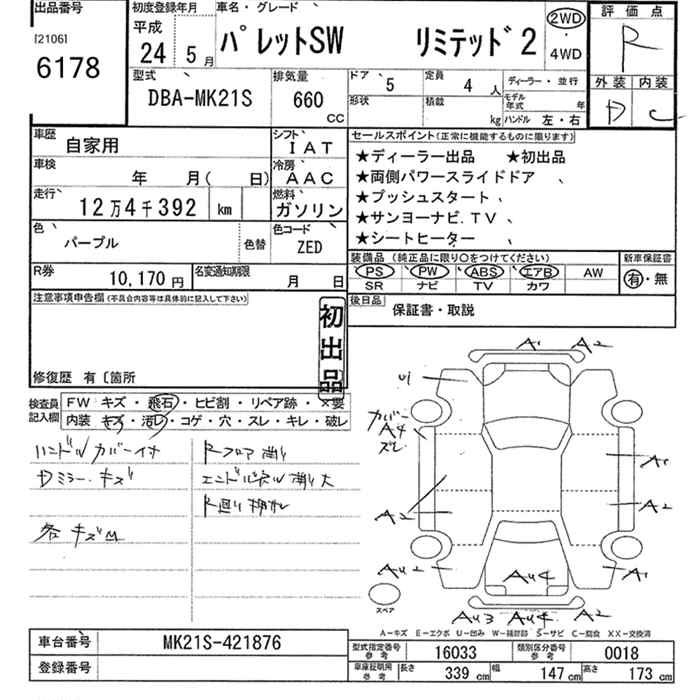 出品番号
[2106]
6178
初度登録年月
平成
24 5月
車名・グレード
パレットSW リミテッド2
2WD
・
4WD
評価点
R
外装 内装
D C
型式
DBA-MK21S
排気量
660
CC
ドア
5
定員
4 人
形状
積載
kg
ディーラー・並行
モデル年式 年
ハンドル 左・右
車歴
自家用
シフト
IAT
車検
年 月( 日)
冷房
AAC
走行
12万4千392 km
燃料
ガソリン
色
パープル
色替
色コード
ZED
R券
10,170円
名変通知期限
月 日
セールスポイント(正常に機能するものに限ります)
★ディーラー出品 ★初出品
★両側パワースライドドア 、
★プッシュスタート 、
★サンヨーナビ.TV 、
★シートヒーター
装備品(純正品に限り○をつけてください)
PS PW ABS エアB AW
SR ナビ TV カワ
新車保証書
有・無
後日品
保証書・取説
注意事項申告欄(不具合内容等は具体的に記入して下さい)
初出品
修復歴 有〔箇所
検査員記入欄
FW キズ・飛石・ヒビ割・リペア跡・×要
内装 キズ・汚レ・コゲ・穴・スレ・キレ・破レ
ハンドルカバー付
Dミラー・キズ
各キズM
Rフロア
エンドパネル
A1 A2
U1
カバー
A4
ズレ
A2
AU2
A1
A2
A1
AU4
AU3 AU4 A2
スペア
A-キズ E-エクボ U-凹み W-補修跡 S-サビ C-腐食 XX-交換済
車台番号
MK21S-421876
登録番号
型式指定番号
参考
16033
類別区分番号
参考
0018
車庫証明用
参考
長さ 339 cm 幅 147 cm 高さ 173 cm